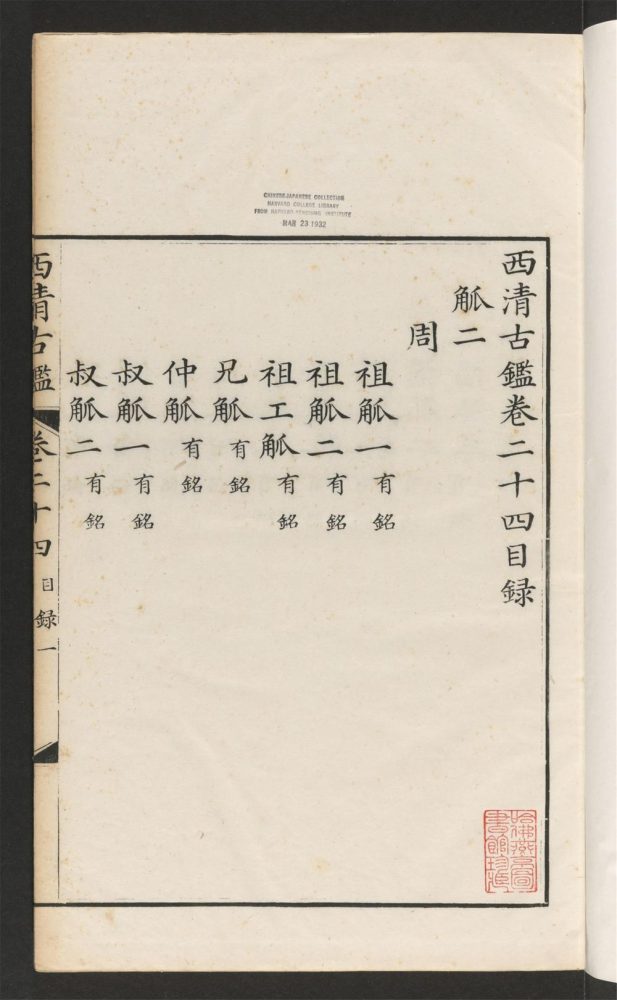 CHINESE-JAPANESE COLLECTION
HARVARD COLLEGE LIBRARY
FROM HARVARD-YENCHING INSTITUTE
MAR 23 1932
西清古鑑卷二十四目録
觚二
周
祖觚一有銘
祖觚二有銘
祖工觚有銘
兄觚有銘
仲觚有銘
叔觚一有銘
叔觚二有銘
西清古鑑 卷二十四 目録 一
哈佛燕京圖
書館珍藏